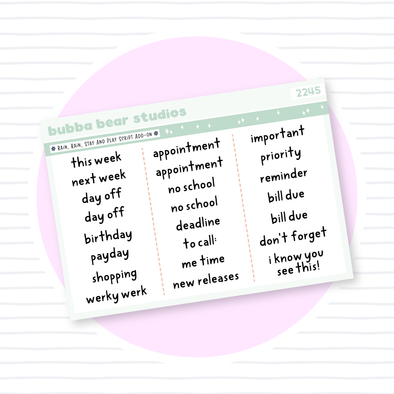 bubba bear studios
2245
RAIN, RAIN, STAY AND PLAY SCRIPT ADD-ON
this week
next week
day off
day off
birthday
payday
shopping
werky werk
appointment
appointment
no school
no school
deadline
to call:
me time
new releases
important
priority
reminder
bill due
bill due
don't forget
i know you
see this!